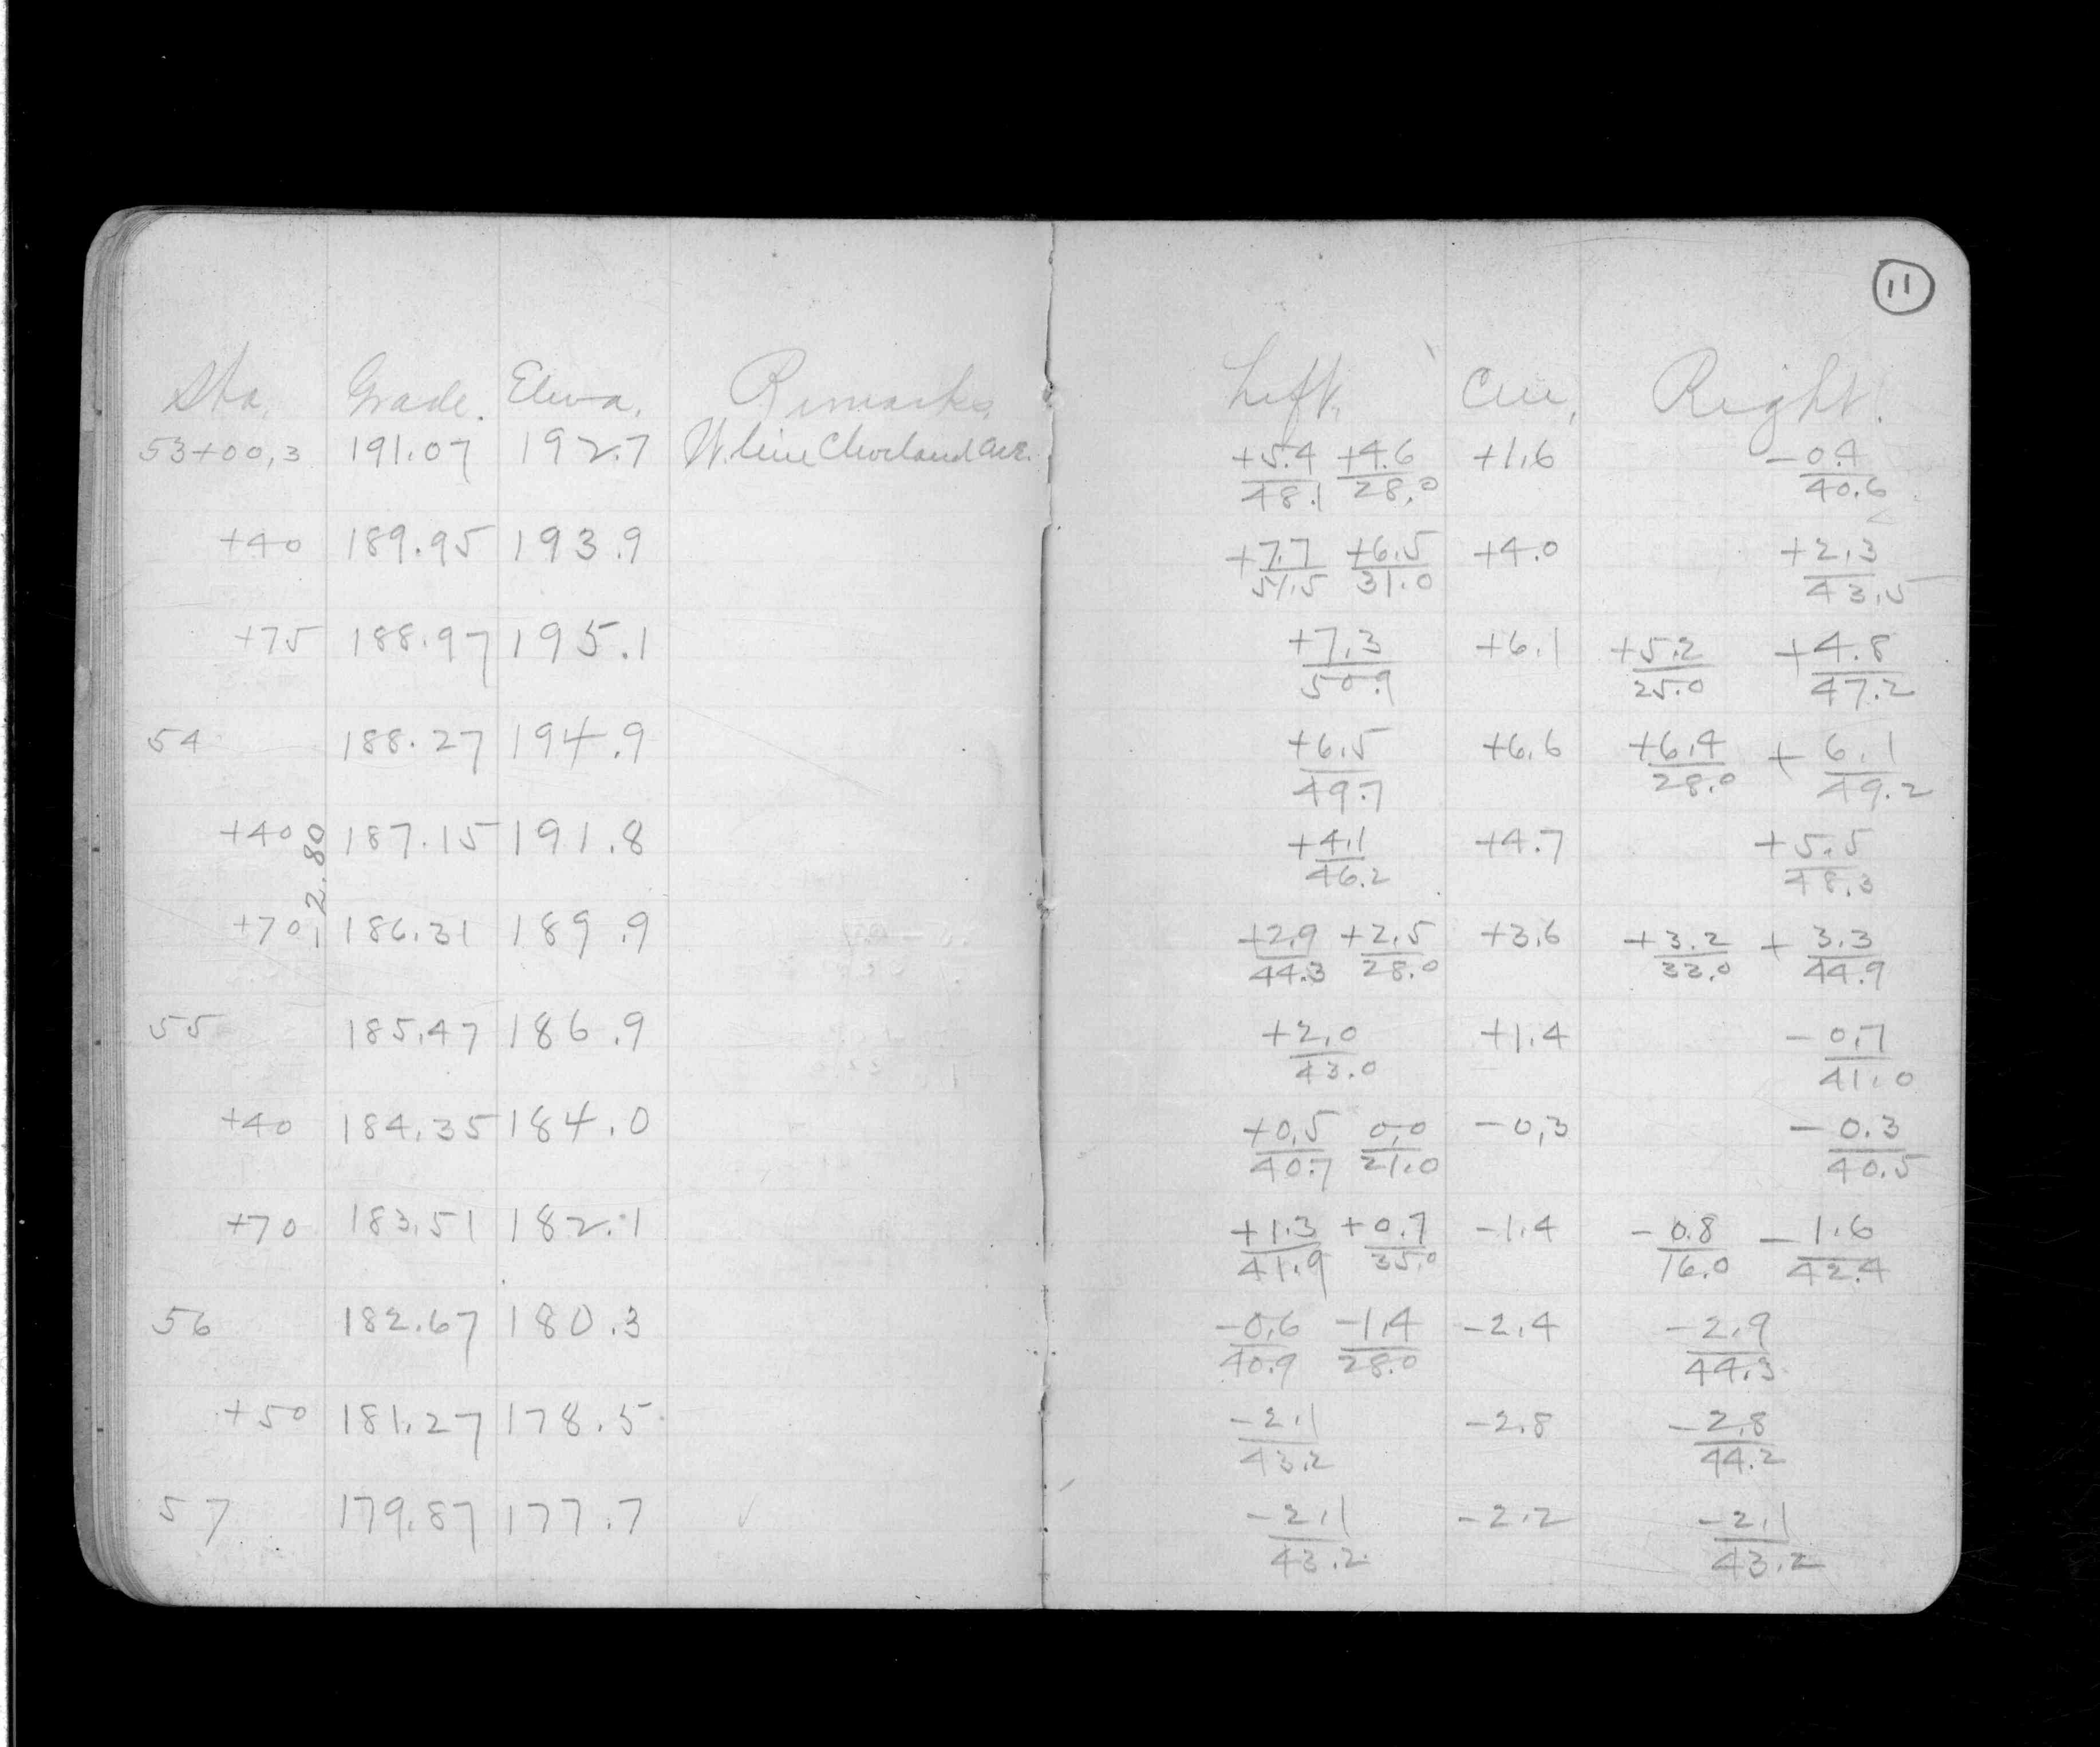 11
Sta. Grade. Eleva. Remarks Left. Cen. Right.
53+00.3 191.07 192.7 W. line Cleveland Ave. +5.4/48.1 +4.6/28.0 +1.6 -0.4/40.6
+40 189.95 193.9 +7.7/51.5 +6.5/31.0 +4.0 +2.3/43.5
+75 188.97 195.1 +7.3/50.9 +6.1 +5.2/25.0 +4.8/47.2
54 188.27 194.9 +6.5/49.7 +6.6 +6.4/28.0 +6.1/49.2
+40 187.15 191.8 +4.1/46.2 +4.7 +5.5/48.3
2.80
+70 186.31 189.9 +2.9/44.3 +2.5/28.0 +3.6 +3.2/33.0 +3.3/44.9
55 185.47 186.9 +2.0/43.0 +1.4 -0.7/41.0
+40 184.35 184.0 +0.5/40.7 0.0/21.0 -0.3 -0.3/40.5
+70 183.51 182.1 +1.3/41.9 +0.7/35.0 -1.4 -0.8/16.0 -1.6/42.4
56 182.67 180.3 -0.6/40.9 -1.4/28.0 -2.4 -2.9/44.3
+50 181.27 178.5 -2.1/43.2 -2.8 -2.8/44.2
57 179.87 177.7 -2.1/43.2 -2.2 -2.1/43.2